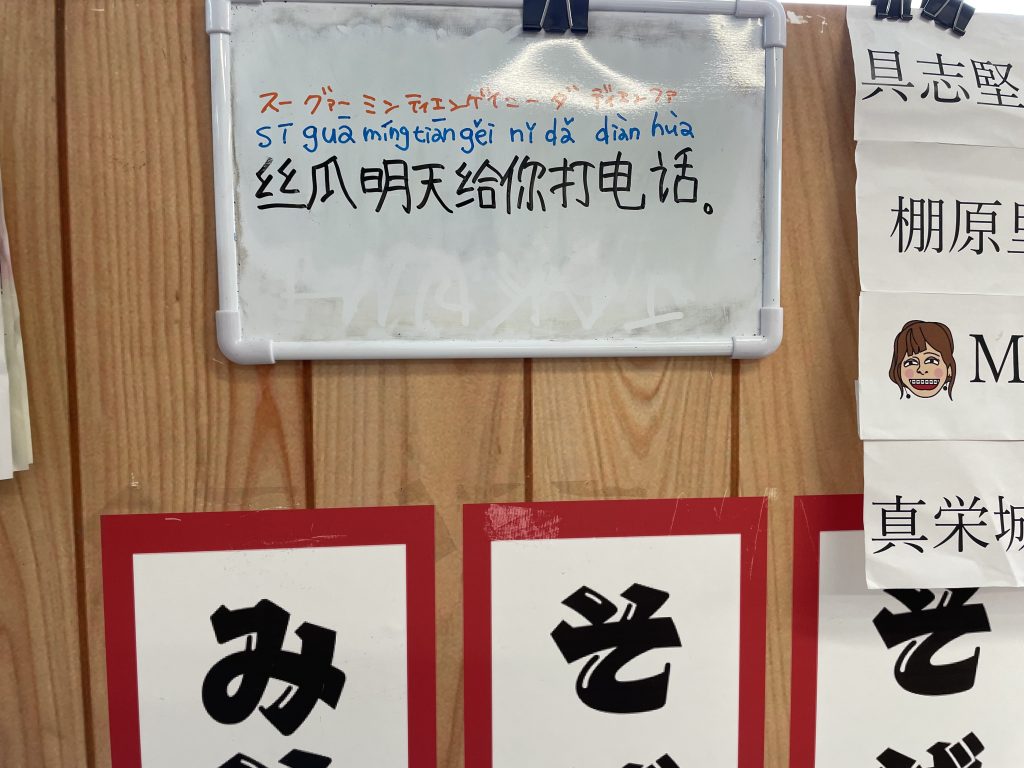 スー グァー ミンティエンゲイニーダ ディエンファ
sī guā míngtiān gěi nǐ dǎ diàn huà
丝瓜明天给你打电话。
具志堅
棚原里
M
真栄城
み
そ
そ